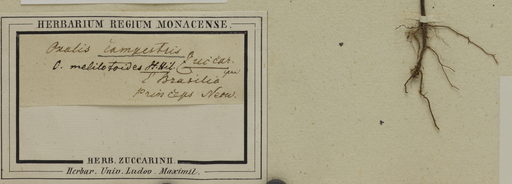 HERBARIUM REGIUM MONACENSE.
Oxalis campestris
O. melilotoides Zuccar.
e Brasilia
Princeps Neow.
HERB. ZUCCARINII.
Herbar. Univ. Ludov. Maximil.